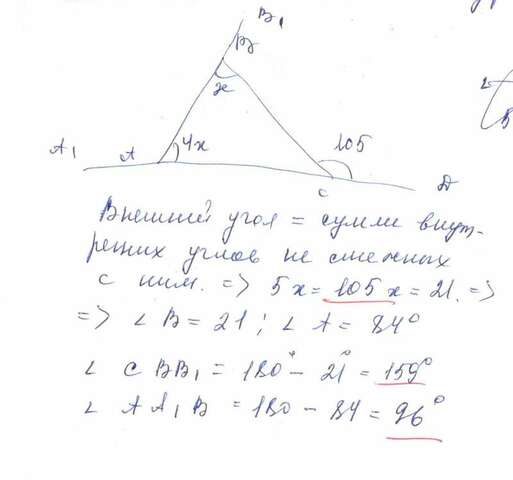 B₁
B
x
4x
105
A₁
A
C
D
Внешний угол = сумме внут-
ренних углов не смежных
с ним. => 5x = 105 x = 21. =>
=> ∠ B = 21 ; ∠ A = 84°
∠ CBB₁ = 180° - 21° = 159°
∠ AA₁B = 180 - 84 = 96°